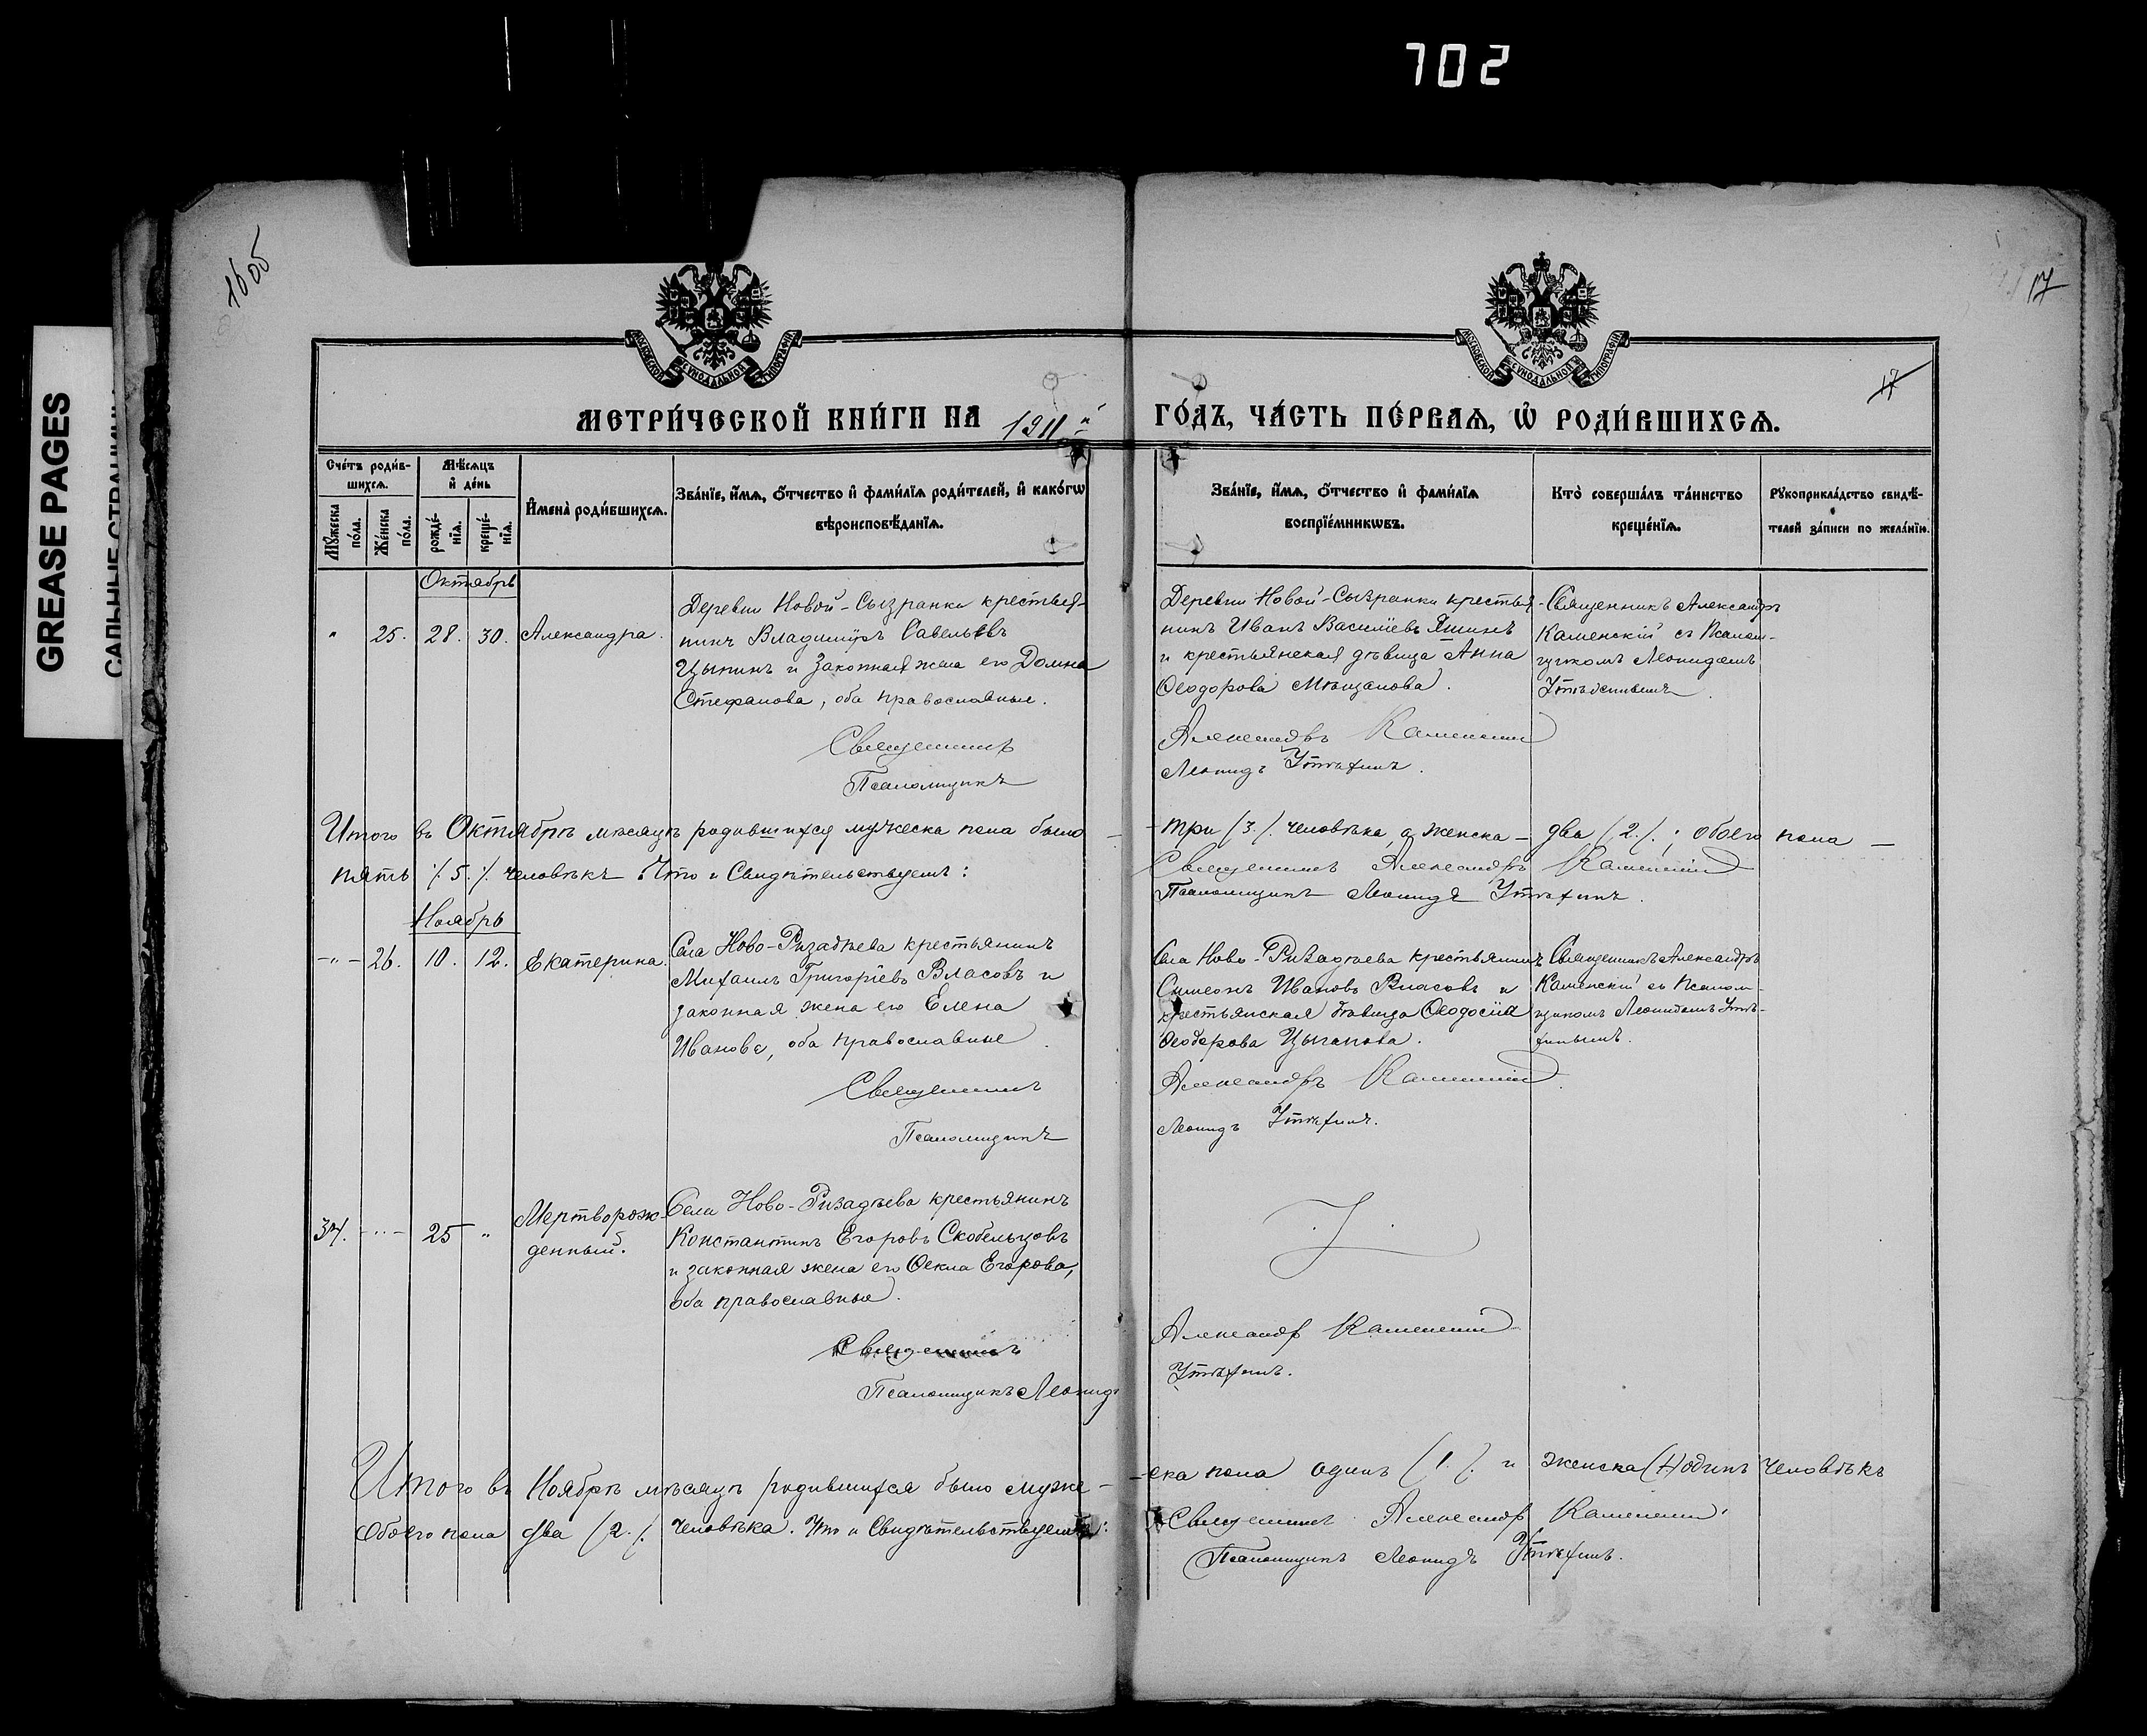 702
GREASE PAGES
16 об
17
17
МОСКОВСКОЙ СѴНОДАЛЬНОЙ ТИПОГРАФІИ
МОСКОВСКОЙ СѴНОДАЛЬНОЙ ТИПОГРАФІИ
МЕТРИ́ЧЕСКОЙ КНИ́ГИ НА 1911й ГО́ДЪ, ЧА́СТЬ ПЕ́РВАѦ, Ѡ҆ РОДИ́ВШИХСѦ.
Сче́тъ роди́в-
шихсѧ.
Мѣ́сѧцъ
и҆ де́нь
Мꙋ́жеска
по́ла.
Же́нска
по́ла.
рожде́-
нїѧ.
креще́-
нїѧ.
И҆мена̀ роди́вшихсѧ.
Зва́нїе, и҆́мѧ, ѻ҆́тчество и҆ фами́лїѧ роди́телей, и҆ како́гѡ
вѣроисповѣ́данїѧ.
Зва́нїе, и҆́мѧ, ѻ҆́тчество и҆ фами́лїѧ
воспрїе́мникѡвъ.
Кто̀ соверша́лъ та́инство
креще́нїѧ.
Рꙋкоприкла́дство свидѣ́-
телей за́писи по жела́нїю.
Октябрь
" 25. 28. 30. Александра.
Деревни Новой-Сызранки крестья-
нинъ Владимiръ Савельевъ
Цыпинъ и законная жена его Домна
Стефанова, оба православные.
Священникъ
Псаломщикъ
Деревни Новой-Сызранки крестья-
нинъ Иванъ Василіевъ Яшинъ
и крестьянская дѣвица Анна
Ѳеодорова Мѣщанова.
Александръ Каменскій
Леонидъ Утѣхинъ.
Священникъ Александръ
Каменскій съ Псалом-
щикомъ Леонидомъ
Утѣхинымъ.
Итого въ Октябрѣ мѣсяцѣ родившихся мужеска пола было - три (3.). человѣка, а женска - два (2.).; обоего пола -
пять (5.). человѣкъ. Что и Свидѣтельствуемъ: Священникъ Александръ Каменскій
Псаломщикъ Леонидъ Утѣхинъ.
Ноябрь
-"- 26. 10. 12. Екатерина.
Села Ново-Ризадѣева крестьянинъ
Михаилъ Григорiевъ Власовъ и
законная жена его Елена
Иванова, оба православные.
Священникъ
Псаломщикъ
Села Ново-Ризадѣева крестьянинъ
Симеонъ Ивановъ Власовъ и
крестьянская дѣвица Ѳеодосія
Ѳеодорова Цыганова.
Александръ Каменскій.
Леонидъ Утѣхинъ.
Священникъ Александръ
Каменскій съ Псалом-
щикомъ Леонидомъ Утѣ-
хинымъ.
34. -"- 25 " Мертворож-
денный.
Села Ново-Ризадѣева крестьянинъ
Константинъ Егоровъ Скобельцовъ
и законная жена его Ѳекла Егорова,
оба православные.
Священникъ
Псаломщикъ Леонидъ
Александръ Каменскій
Утѣхинъ.
Итого въ Ноябрѣ мѣсяцѣ родившихся было муже- -ска пола одинъ (1.). и женска (1) одинъ человѣкъ
Обоего пола два (2.). человѣка. Что и Свидѣтельствуемъ: Священникъ Александръ Каменскій
Псаломщикъ Леонидъ Утѣхинъ.